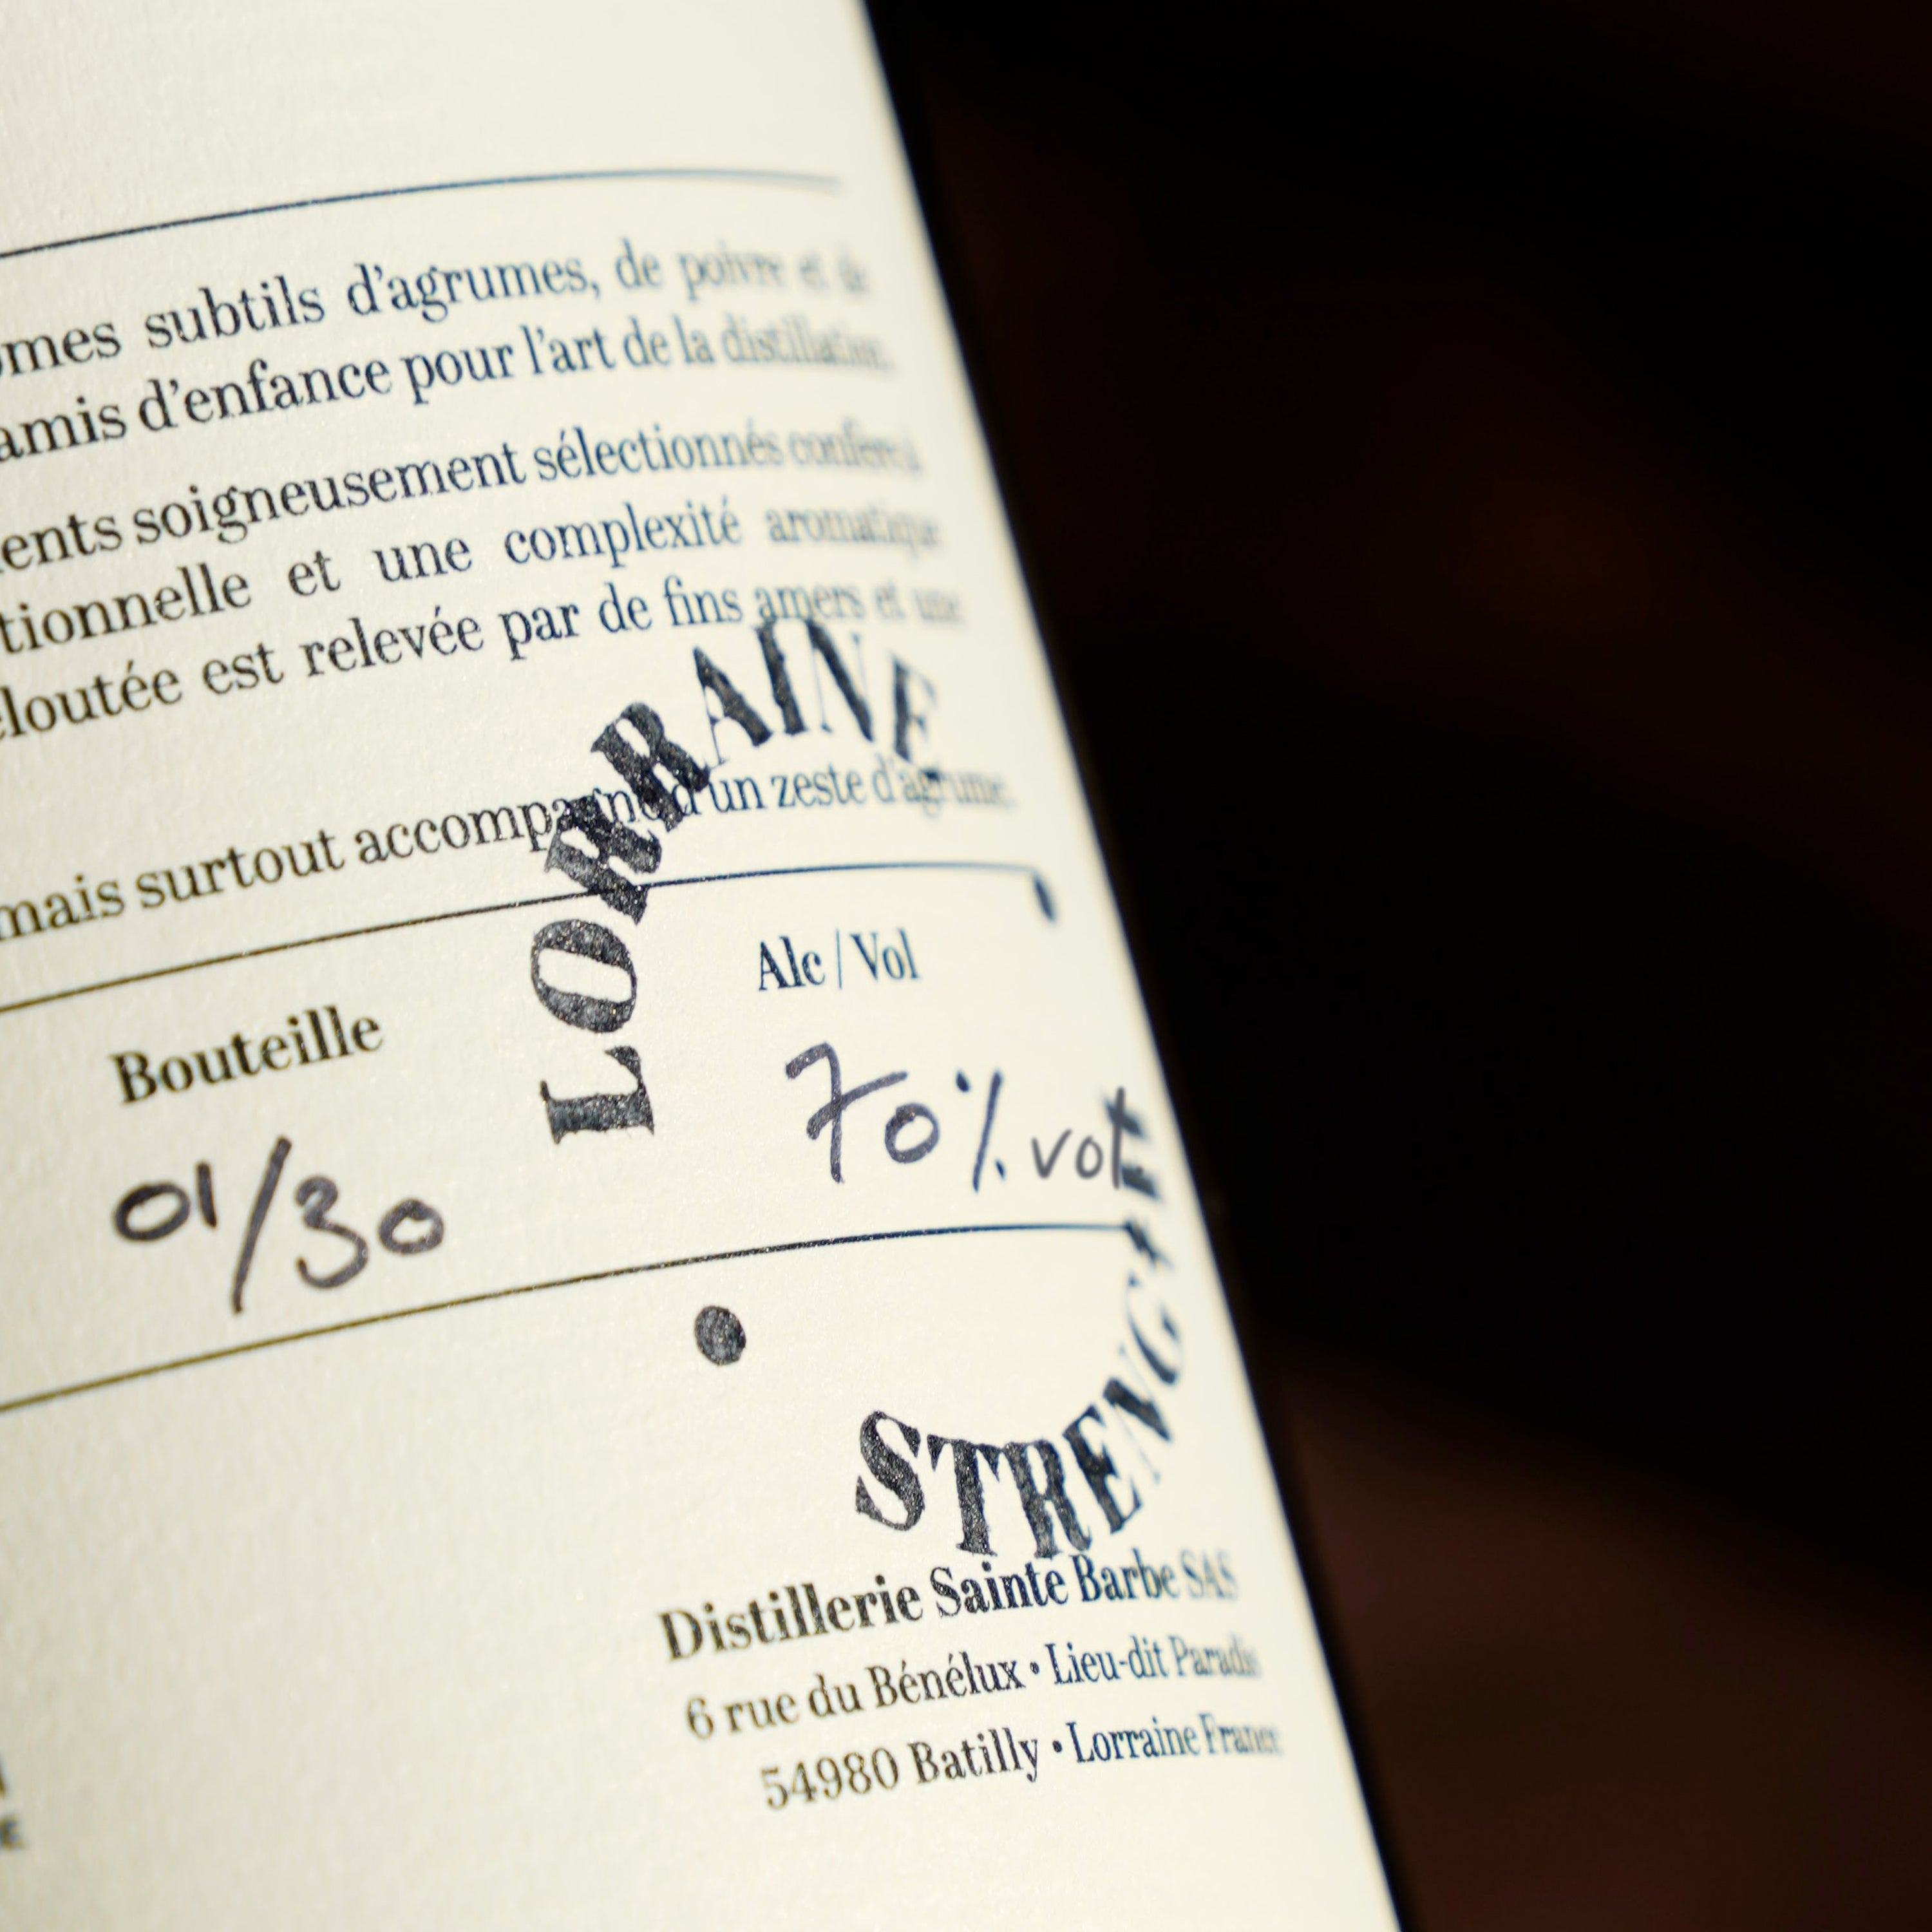 omes subtils d'agrumes, de poivre et de
amis d'enfance pour l'art de la distillation.
ents soigneusement sélectionnés confère à
tionnelle et une complexité aromatique
eloutée est relevée par de fins amers et une
mais surtout accompagné d'un zeste d'agrume.
LORRAINE
Bouteille
Alc / Vol
01/30
70% vol
STRENGTH
Distillerie Sainte Barbe SAS
6 rue du Bénélux • Lieu-dit Paradis
54980 Batilly • Lorraine France